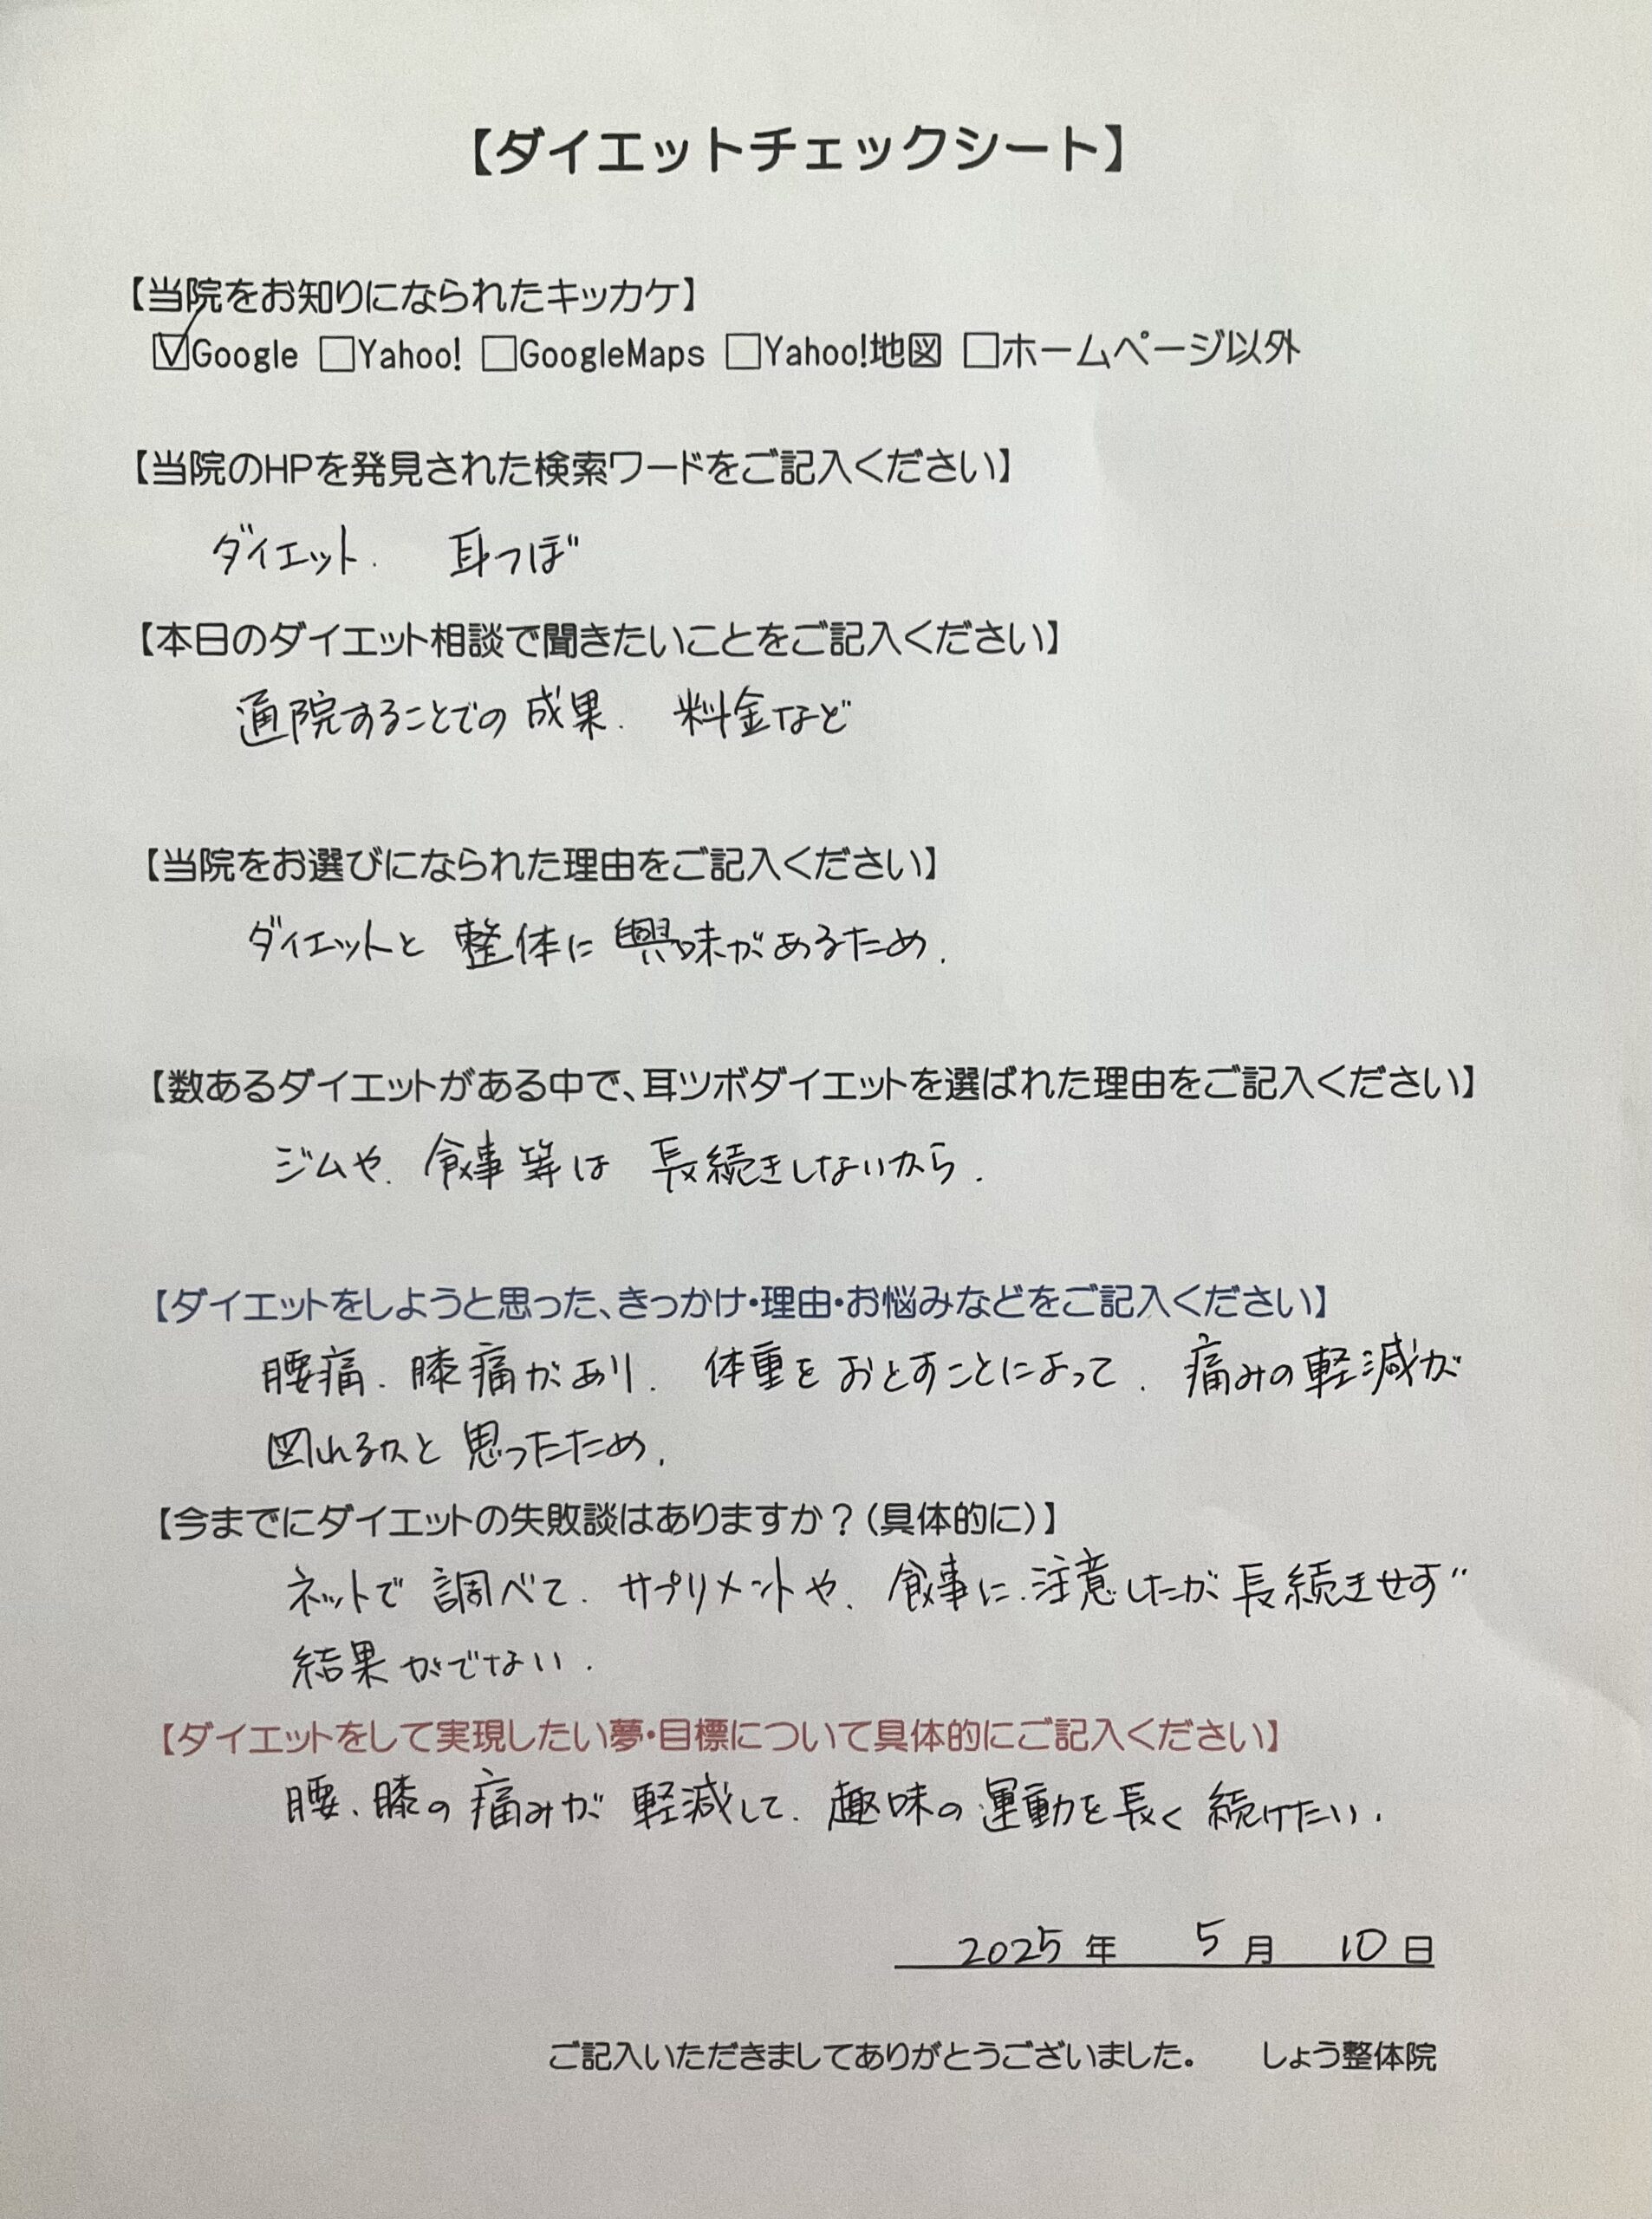 【ダイエットチェックシート】
【当院をお知りになられたキッカケ】
☑Google □Yahoo! □GoogleMaps □Yahoo!地図 □ホームページ以外
【当院のHPを発見された検索ワードをご記入ください】
ダイエット. 耳つぼ
【本日のダイエット相談で聞きたいことをご記入ください】
通院することでの成果. 料金など
【当院をお選びになられた理由をご記入ください】
ダイエットと整体に興味があるため.
【数あるダイエットがある中で、耳ツボダイエットを選ばれた理由をご記入ください】
ジムや、食事等は長続きしないから.
【ダイエットをしようと思った、きっかけ・理由・お悩みなどをご記入ください】
腰痛、膝痛があり、体重をおとすことによって、痛みの軽減が
図れるかと思ったため.
【今までにダイエットの失敗談はありますか？（具体的に）】
ネットで調べて、サプリメントや、食事に注意したが長続きせず
結果がでない.
【ダイエットをして実現したい夢・目標について具体的にご記入ください】
腰、膝の痛みが軽減して、趣味の運動を長く続けたい.
2025年 5月 10日
ご記入いただきましてありがとうございました。 しょう整体院